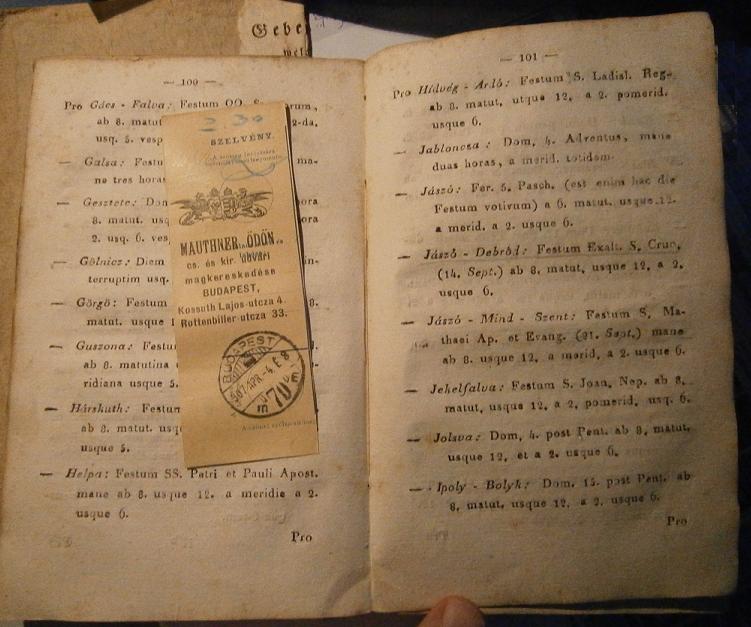 Gebe
— 100 —
Pro Gács - Falva: Festum OO. S orum,
ab 8. matut 2-da.
usq. 5. vesp
— Galsa: Festu ma-
ne tres horas
— Gesztete: Dom ora
8. matut. usq ora
2. usq. 6. ves
— Gölnicz: Diem in-
terruptim usq.
— Görgö: Festum 8.
matut. usque 1
— Guszona: Festu
ab 8. matutina
ridiana usque 5.
— Hárskuth: Festum
ab 8. matut. usq
usque 5.
— Helpa: Festum SS. Petri et Pauli Apost.
mane ab 8. usque 12. a meridie a 2.
usque 6.
Pro
2.30
SZELVÉNY.
MAUTHNER ÖDÖN
cs. és kir. udvari
magkereskedése
BUDAPEST,
Kossuth Lajos-utcza 4.
Rottenbiller-utcza 33.
BUDAPEST
907 APR.-4. E 8
70
— 101 —
Pro Hidvég - Ardó: Festum S. Ladisl. Reg.
ab 8. matut. utque 12. a 2. pomerid.
usque 6.
— Jabloncsa: Dom. 4. Adventus, mane
duas horas, a merid. totidem.
— Jászó: Fer. 5. Pasch. (est enim hac die
Festum votivum) a 6. matut. usque 12.
a merid. a 2. usque 6.
— Jászó - Debröd: Festum Exalt. S. Cruc.
(14. Sept.) ab 8. matut. usque 12. a 2.
usque 6.
— Jászó - Mind - Szent: Festum S. Ma-
thaei Ap. et Evang. (21. Sept.) mane
ab 8. usque 12. a merid. a 2. usque 6.
— Jekelfalva: Festum S. Joan. Nep. ab 8.
matut. usque 12. a 2. pomerid. usq. 6.
— Jolsva: Dom. 4. post Pent. ab 8. matut.
usque 12. et a 2. usque 6.
— Ipoly - Bolyk: Dom. 15. post Pent. ab
8. matut. usque 12. a 2. usque 6.
Pro